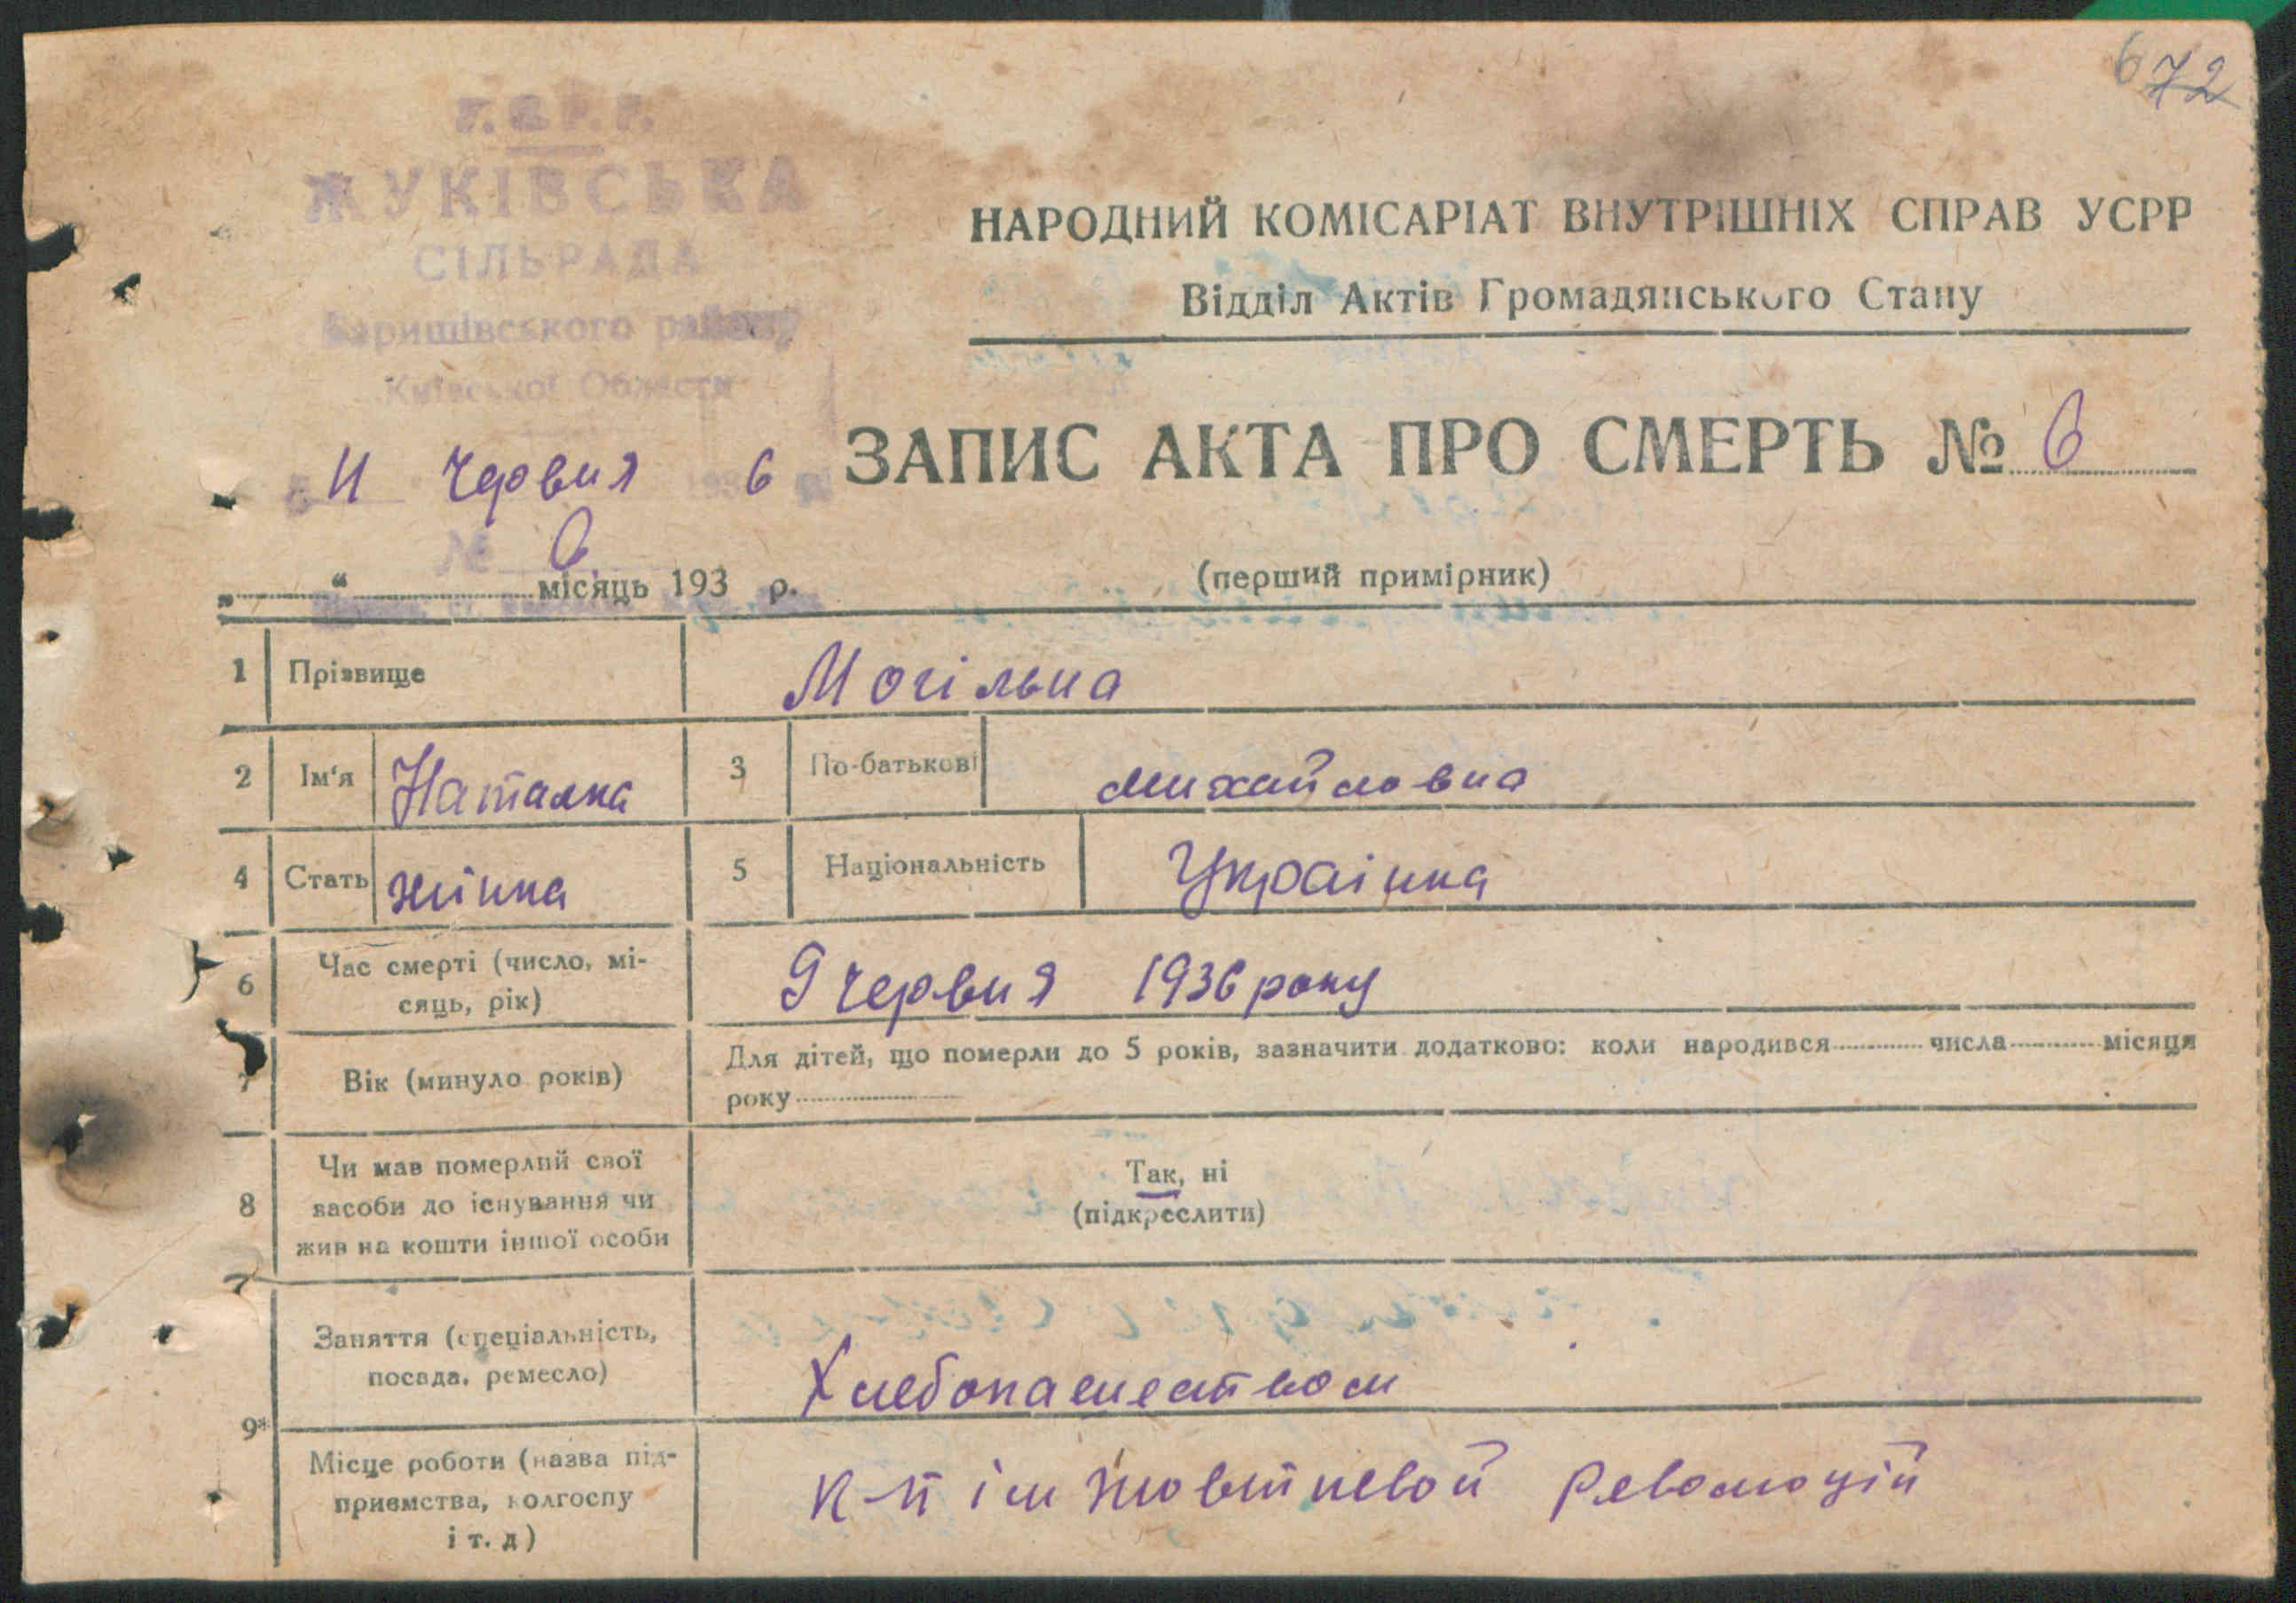 672
У.С.Р.Р.
ЖУКІВСЬКА
СІЛЬРАДА
Баришівського району
Київської Области
НАРОДНИЙ КОМІСАРІАТ ВНУТРІШНІХ СПРАВ УСРР
Відділ Актів Громадянського Стану
11 Червня 6
ЗАПИС АКТА ПРО СМЕРТЬ № 6
№ 6
„ “ місяць 193 р.
(перший примірник)
1 Прізвище Могільна
2 Ім'я Наталка 3 По-батькові Михайловна
4 Стать жінка 5 Національність Українка
6 Час смерті (число, мі-
сяць, рік) 9 червня 1936 року
7 Вік (минуло років) Для дітей, що померли до 5 років, зазначити додатково: коли народився числа місяця
року
8 Чи мав померлий свої
засоби до існування чи
жив на кошти іншої особи
Так, ні
(підкреслити)
9* Заняття (спеціальність,
посада, ремесло) Хлебопашеством
Місце роботи (назва під-
приємства, колгоспу
і т. д) к-п ім Жовтневой Революцій